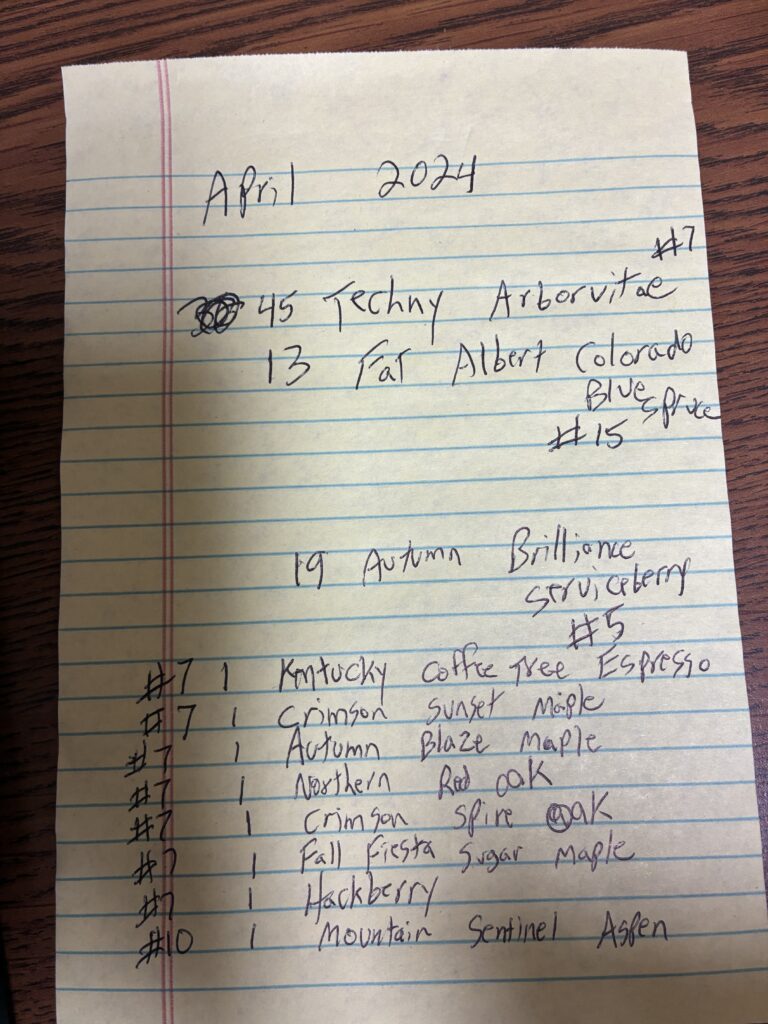 April 2024
#7
45 Techny Arborvitae
13 Fat Albert Colorado
Blue Spruce
#15
19 Autumn Brilliance
Serviceberry
#5
#7 1 Kentucky Coffee Tree Espresso
#7 1 Crimson Sunset Maple
#7 1 Autumn Blaze Maple
#7 1 Northern Red oak
#7 1 Crimson Spire oak
#7 1 Fall Fiesta Sugar Maple
#7 1 Hackberry
#10 1 Mountain Sentinel Aspen